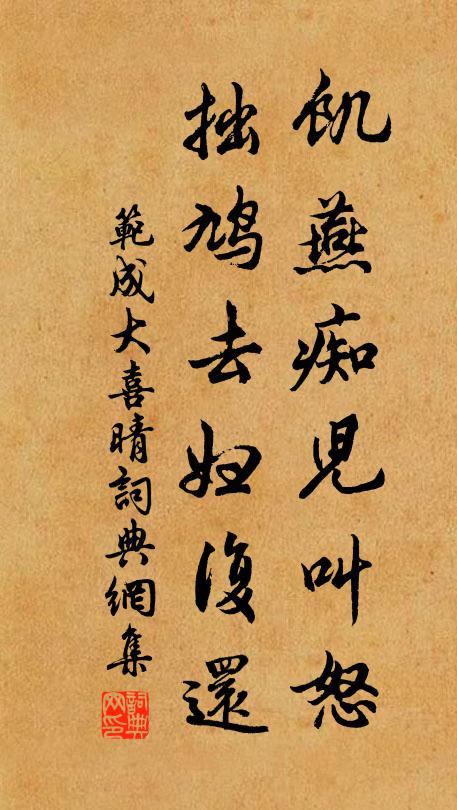 飢燕痴兒叫怒
拙鳩去妇復還
範成大喜晴詞典網集
詞典网印